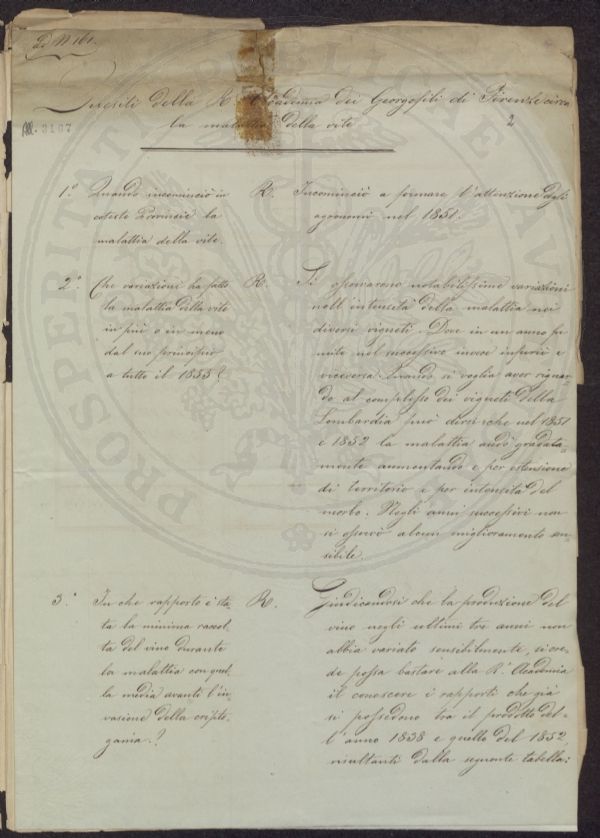 ad N 161.
Quesiti della R. Accademia dei Georgofili di Firenze circa
la malattia della vite
2
All. 3107
1.° Quando incominciò in
coteste Provincie la
malattia della vite.
R. Incominciò a fermare l'attenzione degli
agronomi nel 1851.
2.° Che variazioni ha fatto
la malattia della vite
in più o in meno
dal suo principio
a tutto il 1855?
R. Si osservarono notabilissime variazioni
nell'intensità della malattia nei
diversi vigneti. Dove in un anno fu
mite nel successivo invece infierì e
viceversa. Quando si voglia aver riguar-
do al complesso dei vigneti della
Lombardia può dirsi che nel 1851
e 1852 la malattia andò gradata-
mente aumentando e per estensione
di territorio e per intensità del
morbo. Negli anni successivi non
si osservò alcun miglioramento sen-
sibile.
3.° In che rapporto è sta
ta la minima raccol-
ta del vino durante
la malattia con quel-
la media avanti l'in-
vasione della critto-
gamia?
R. Giudicandosi che la produzione del
vino negli ultimi tre anni non
abbia variato sensibilmente, si cre-
de possa bastare alla R. Accademia
il conoscere i rapporti che già
si possedono tra il prodotto del-
l'anno 1838 e quello del 1852,
risultanti dalla seguente tabella:
PROSPERITATI PUBLICAE AU